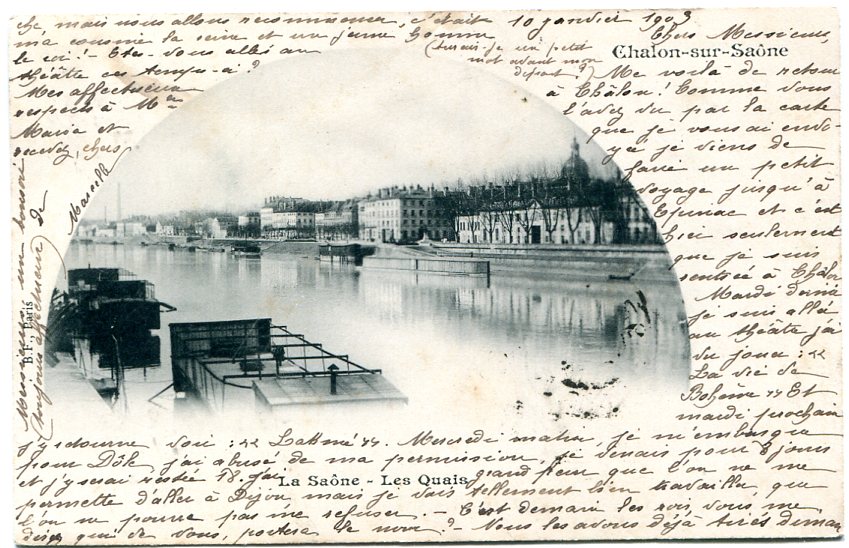 Chalon-sur-Saône
10 janvier 1903
Chers Messieurs,
Me voilà de retour
à Châlon! Comme vous
l'avez vu par la carte
que je vous ai envo-
yée je viens de
faire un petit
voyage jusqu'à
Epinac et c'est
hier seulement
que je suis
rentrée à Châlon
Mardi dernier
je suis allée
au théâtre j'ai
vu jouer : "
La vie de
Bohème " Et
mardi prochain
j'y retourne voir : " Lakmé ". Mercredi matin, je m'embarque
pour Dôle, j'ai abusé de ma permission, je devais pour 8 jours
et j'y serai restée 18. J'ai grand peur que l'on ne me
permette d'aller à Dijon mais je vais tellement bien travailler, que
l'on ne pourra pas me refuser. - C'est demain les rois, vous me
direz qui de vous, portera le noir? - Nous les avons déjà tirés diman
che, mais nous allons recommencer, c'était
ma cousine la reine et un jeune homme
le roi! - Etes-vous allés au
théâtre ces temps-ci?
Mes affectueux
respects à Mme
Maria et
recevez, chers
Messieurs un bonsoir
toujours affectueux de
Marcelle
(aurais-je un petit
mot avant mon
départ?)
La Saône - Les Quais
B.F., Paris